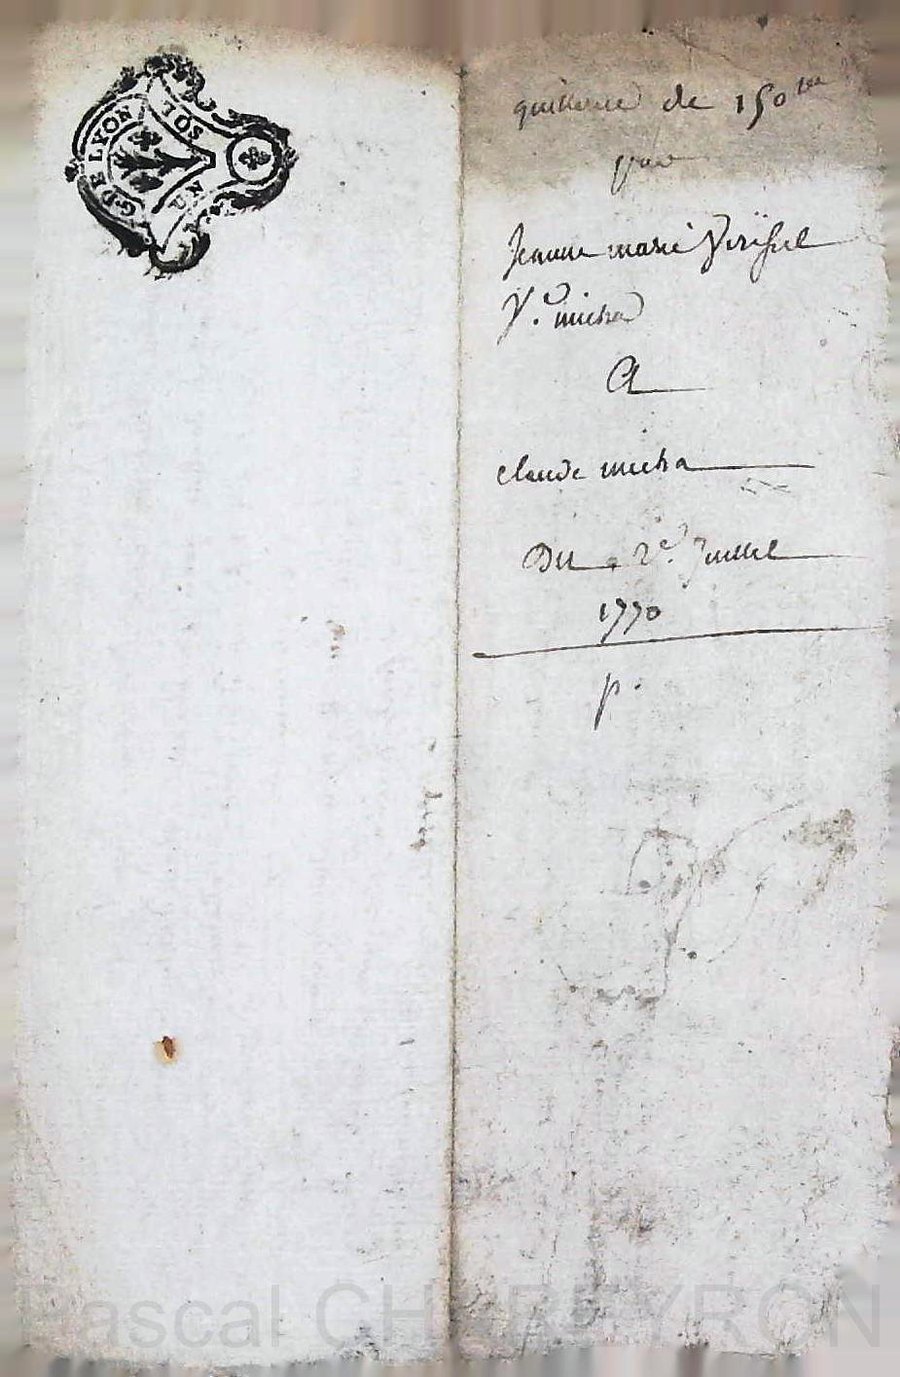 G. DE LYON
UN SOL
quittance de 150 ₶
par
Jeanne marie
Ve. micha
A
claude micha
Du 2e. Juillet
1770
p.
Pascal CHAREYRON